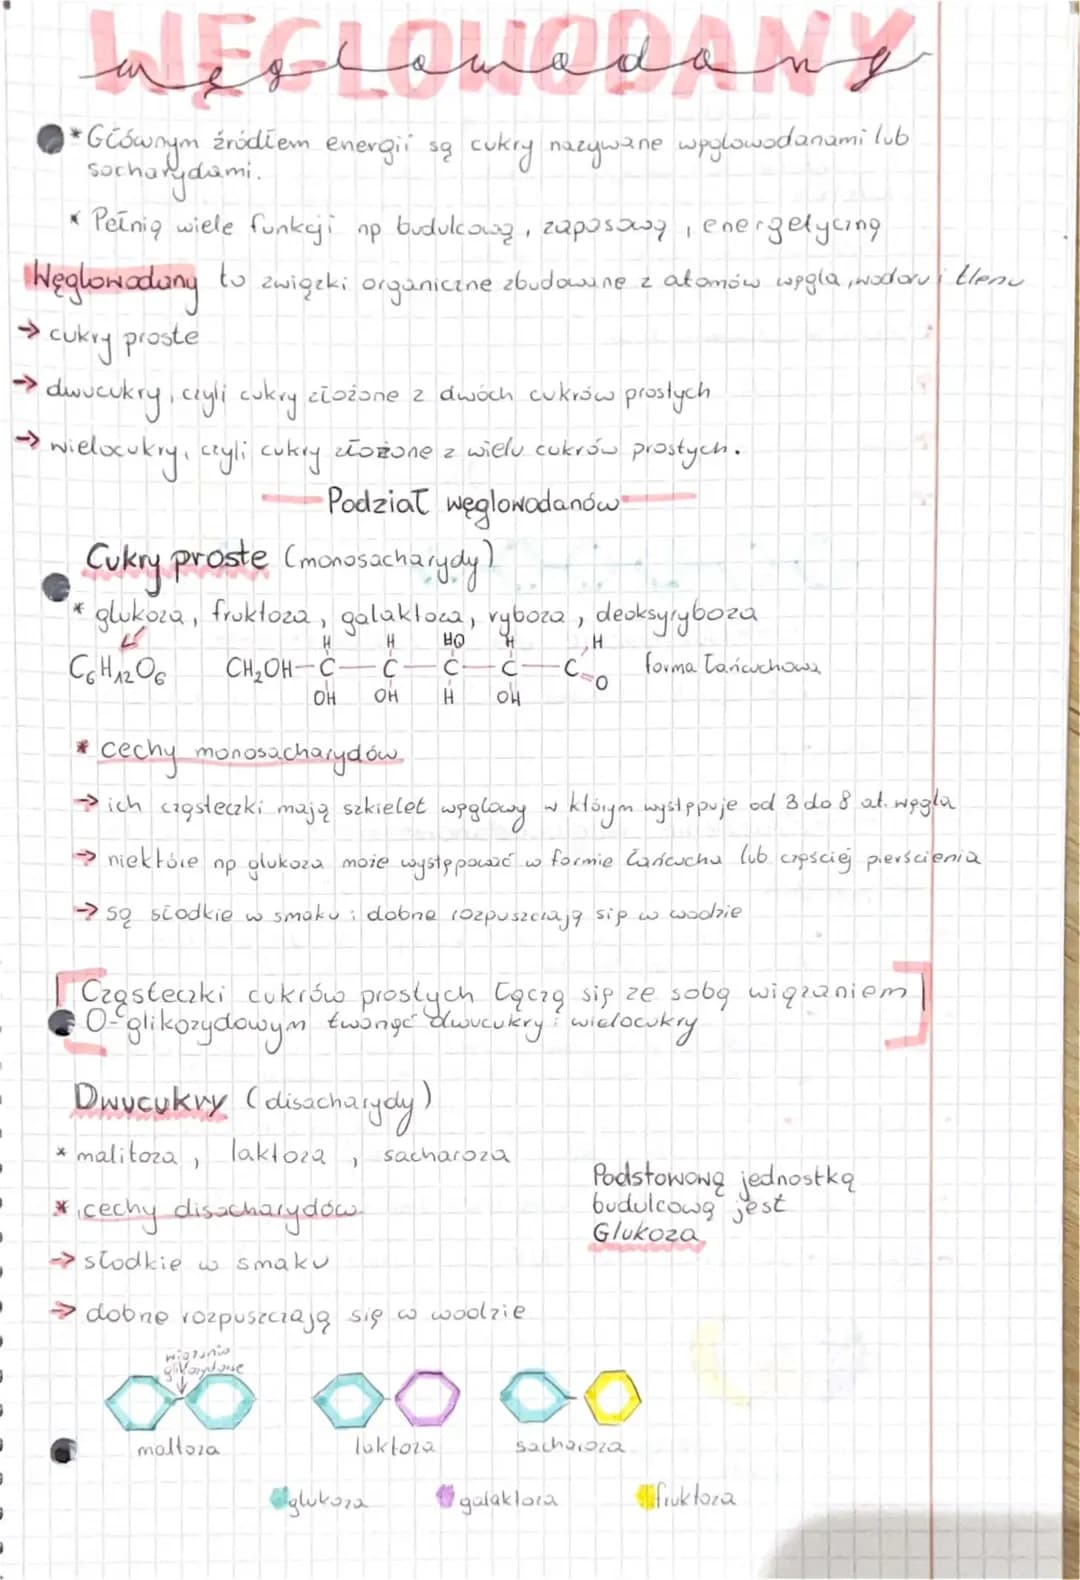 WĘGLOWODANY
węglowodany
* Głównym źródłem energii są cukry nazywane węglowodanami lub
sacharydami.
* Pełnią wiele funkcji np budulcową, zapasową, energetyczną
Węglowodany to związki organiczne zbudowane z atomów węgla, wodoru i tlenu
→ cukry proste
→ dwucukry, czyli cukry złożone z dwóch cukrów prostych
→ wielocukry, czyli cukry złożone z wielu cukrów prostych.
Podział węglowodanów
Cukry proste (monosacharydy)
* glukoza, fruktoza, galaktoza, ryboza, deoksyryboza
H H HO H H
C₆H₁₂O₆ CH₂OH-C-C-C-C-C=O forma łańcuchowa
OH OH H OH
* cechy monosacharydów
→ ich cząsteczki mają szkielet węglowy w którym występuje od 3 do 8 at. węgla
→ niektóre np glukoza może występować w formie łańcucha lub częściej pierścienia
→ są słodkie w smaku i dobrze rozpuszczają się w wodzie
[Cząsteczki cukrów prostych łączą się ze sobą wiązaniem
O-glikozydowym tworząc dwucukry i wielocukry]
Dwucukry (disacharydy)
* malitoza, laktoza, sacharoza
Podstawową jednostką
budulcową jest
Glukoza
* cechy disacharydów
→ słodkie w smaku
→ dobrze rozpuszczają się w wodzie
wiązanie
glikozydowe
maltoza laktoza sacharoza
glukoza galaktoza fruktoza